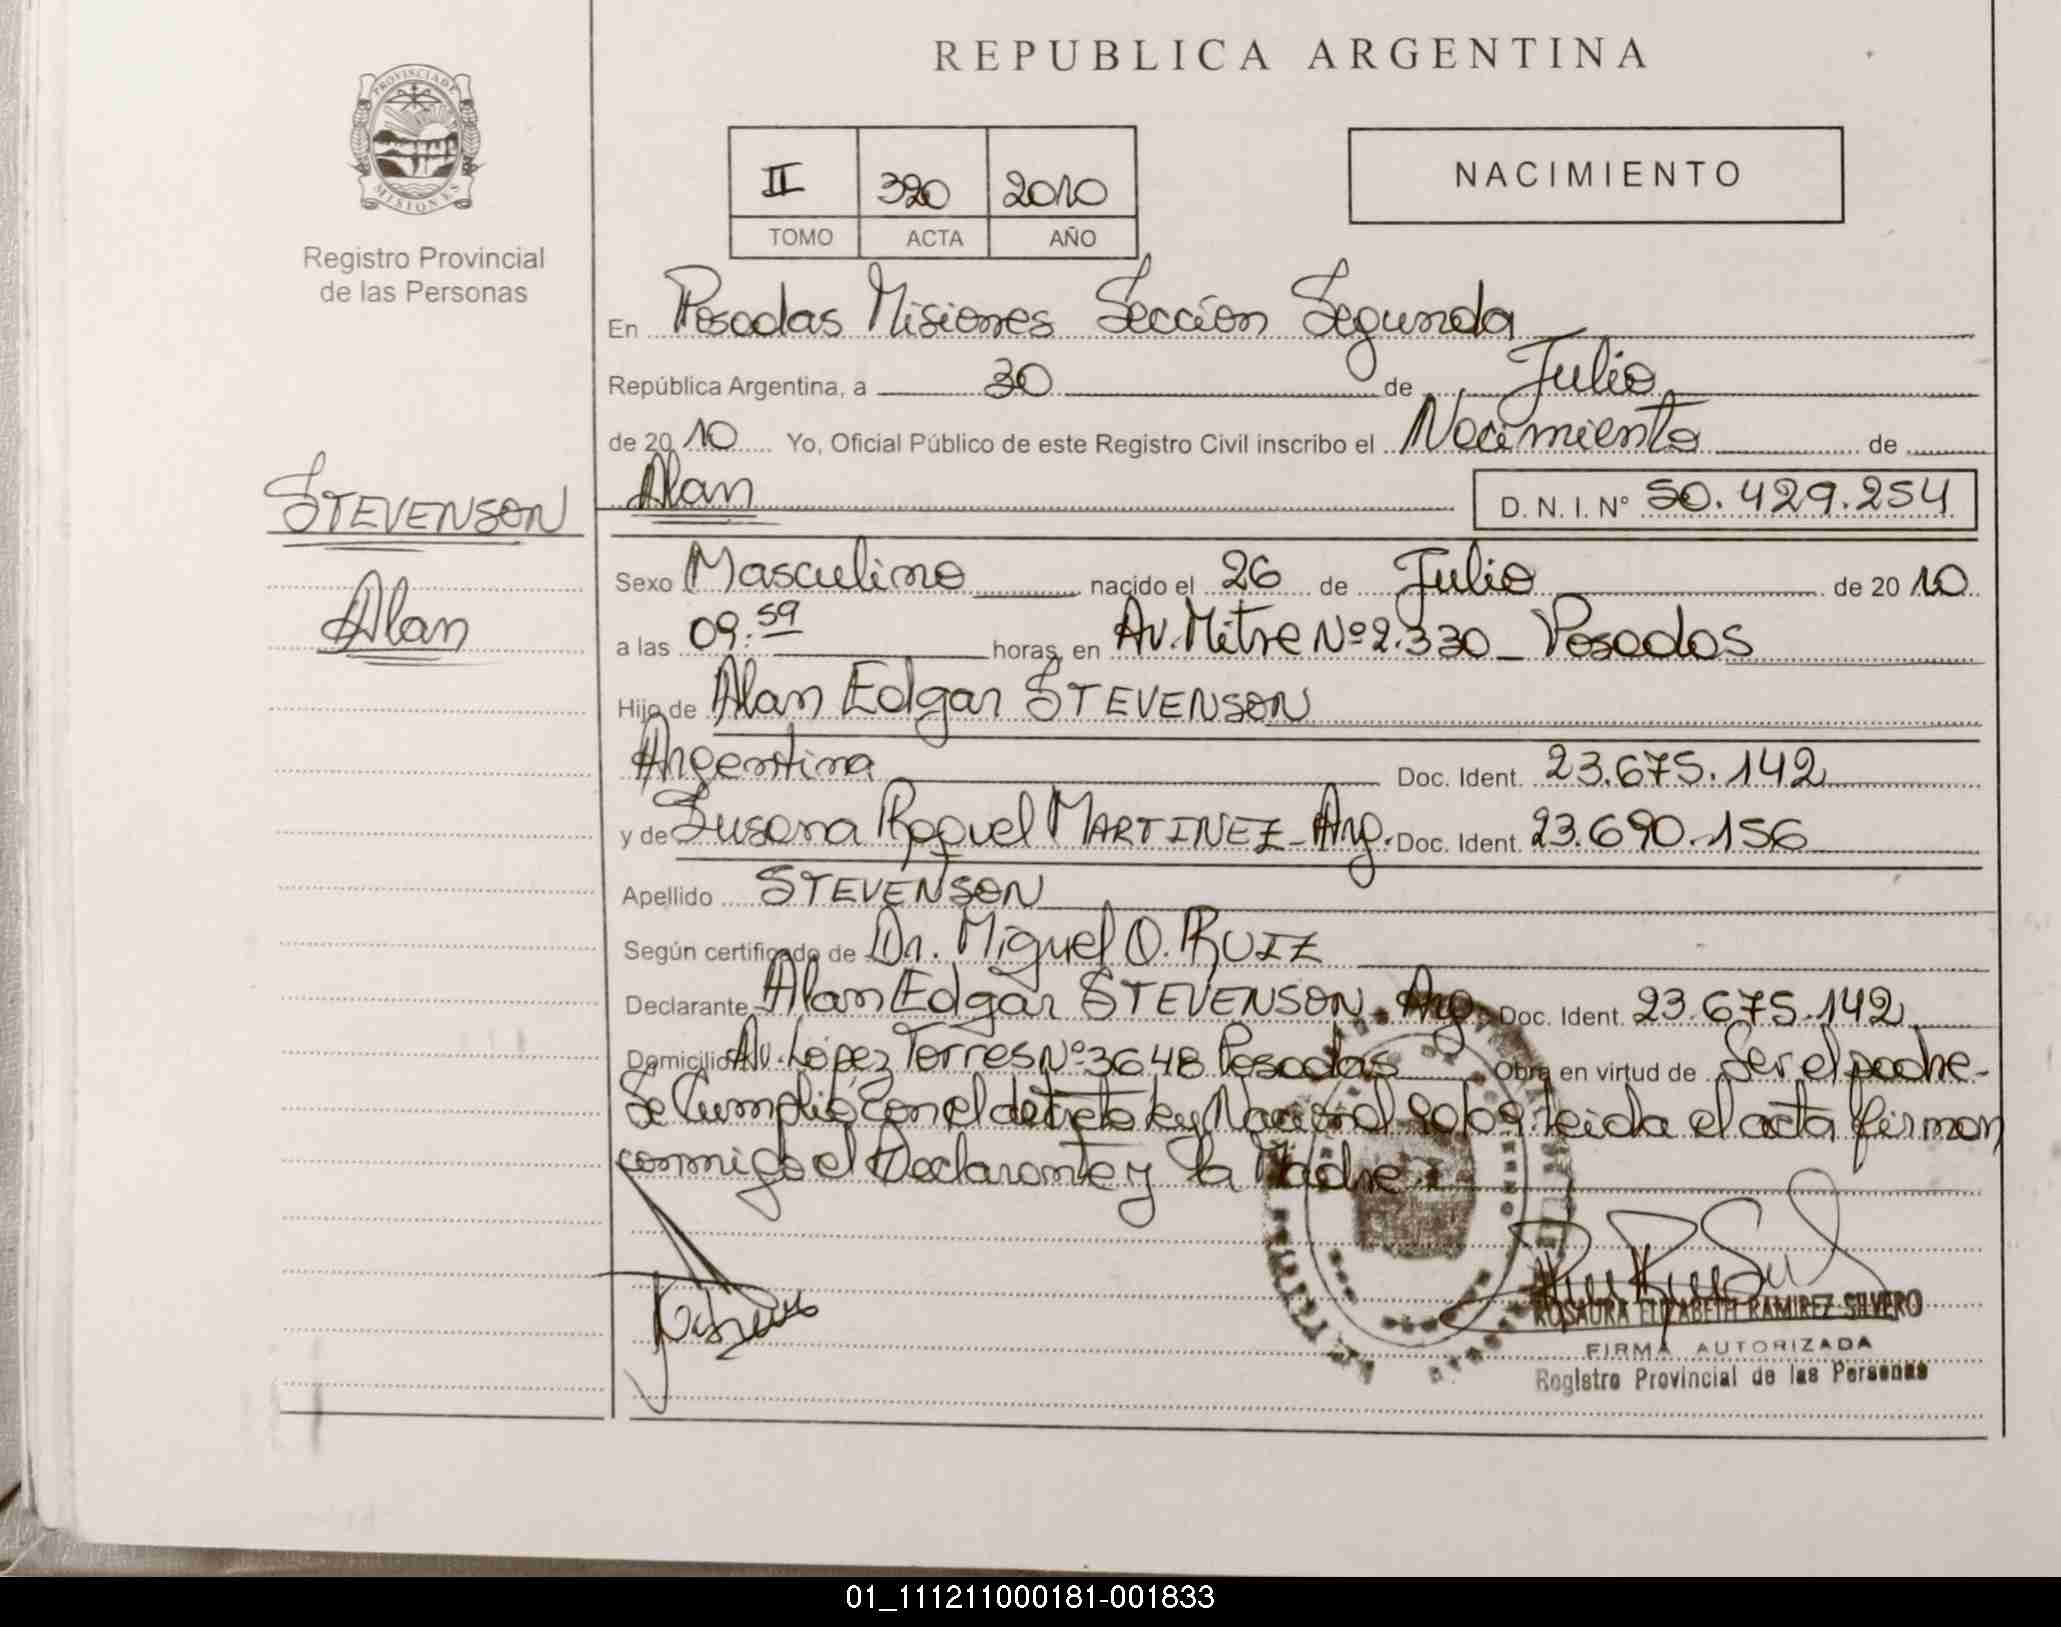 REPUBLICA ARGENTINA
PROVINCIA DE MISIONES
Registro Provincial
de las Personas
II 320 2010
TOMO ACTA AÑO
NACIMIENTO
En Posadas Misiones Sección Segunda
República Argentina, a 30 de Julio
de 2010 Yo, Oficial Público de este Registro Civil inscribo el Nacimiento de
STEVENSON
Alan
Alan D. N. I. Nº 50.429.254
Sexo Masculino nacido el 26 de Julio de 2010
a las 09:59 horas, en Av. Mitre Nº 2.330 - Posadas
Hijo de Alan Edgar STEVENSON
Argentina Doc. Ident. 23.675.142
y de Susana Raquel MARTINEZ - Arg. Doc. Ident. 23.690.156
Apellido STEVENSON
Según certificado de Dr. Miguel O. RUIZ
Declarante Alan Edgar STEVENSON Arg. Doc. Ident. 23.675.142
Domicilio Av. López Torres Nº 3648 Posadas Obra en virtud de Ser el padre-
Se Cumplió con el decreto ley Nacional leida el acta firman
conmigo el Declarante y la Madre
ROSAURA ELIZABETH RAMIREZ SILVERO
FIRMA AUTORIZADA
Registro Provincial de las Personas
01_111211000181-001833